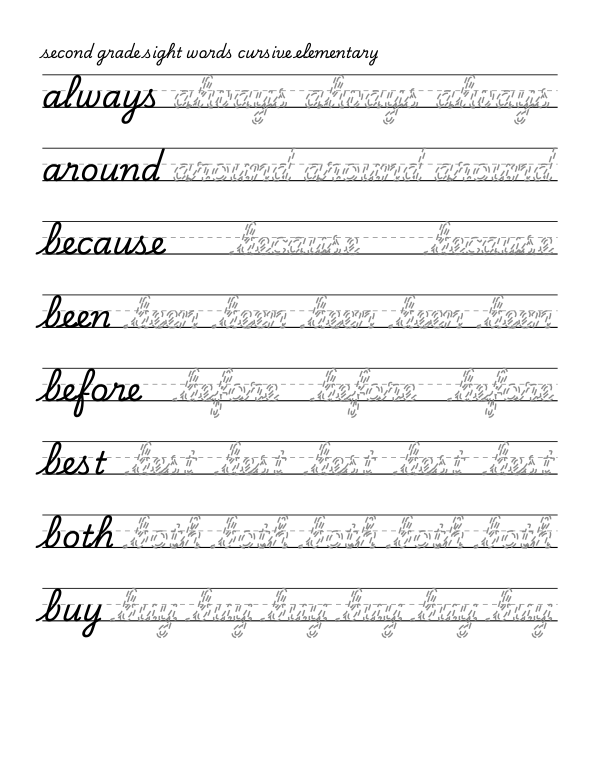 second grade sight words cursive elementary
always always always always
around around around around
because because because
been been been been been been
before before before before
best best best best best best
both both both both both both
buy buy buy buy buy buy buy